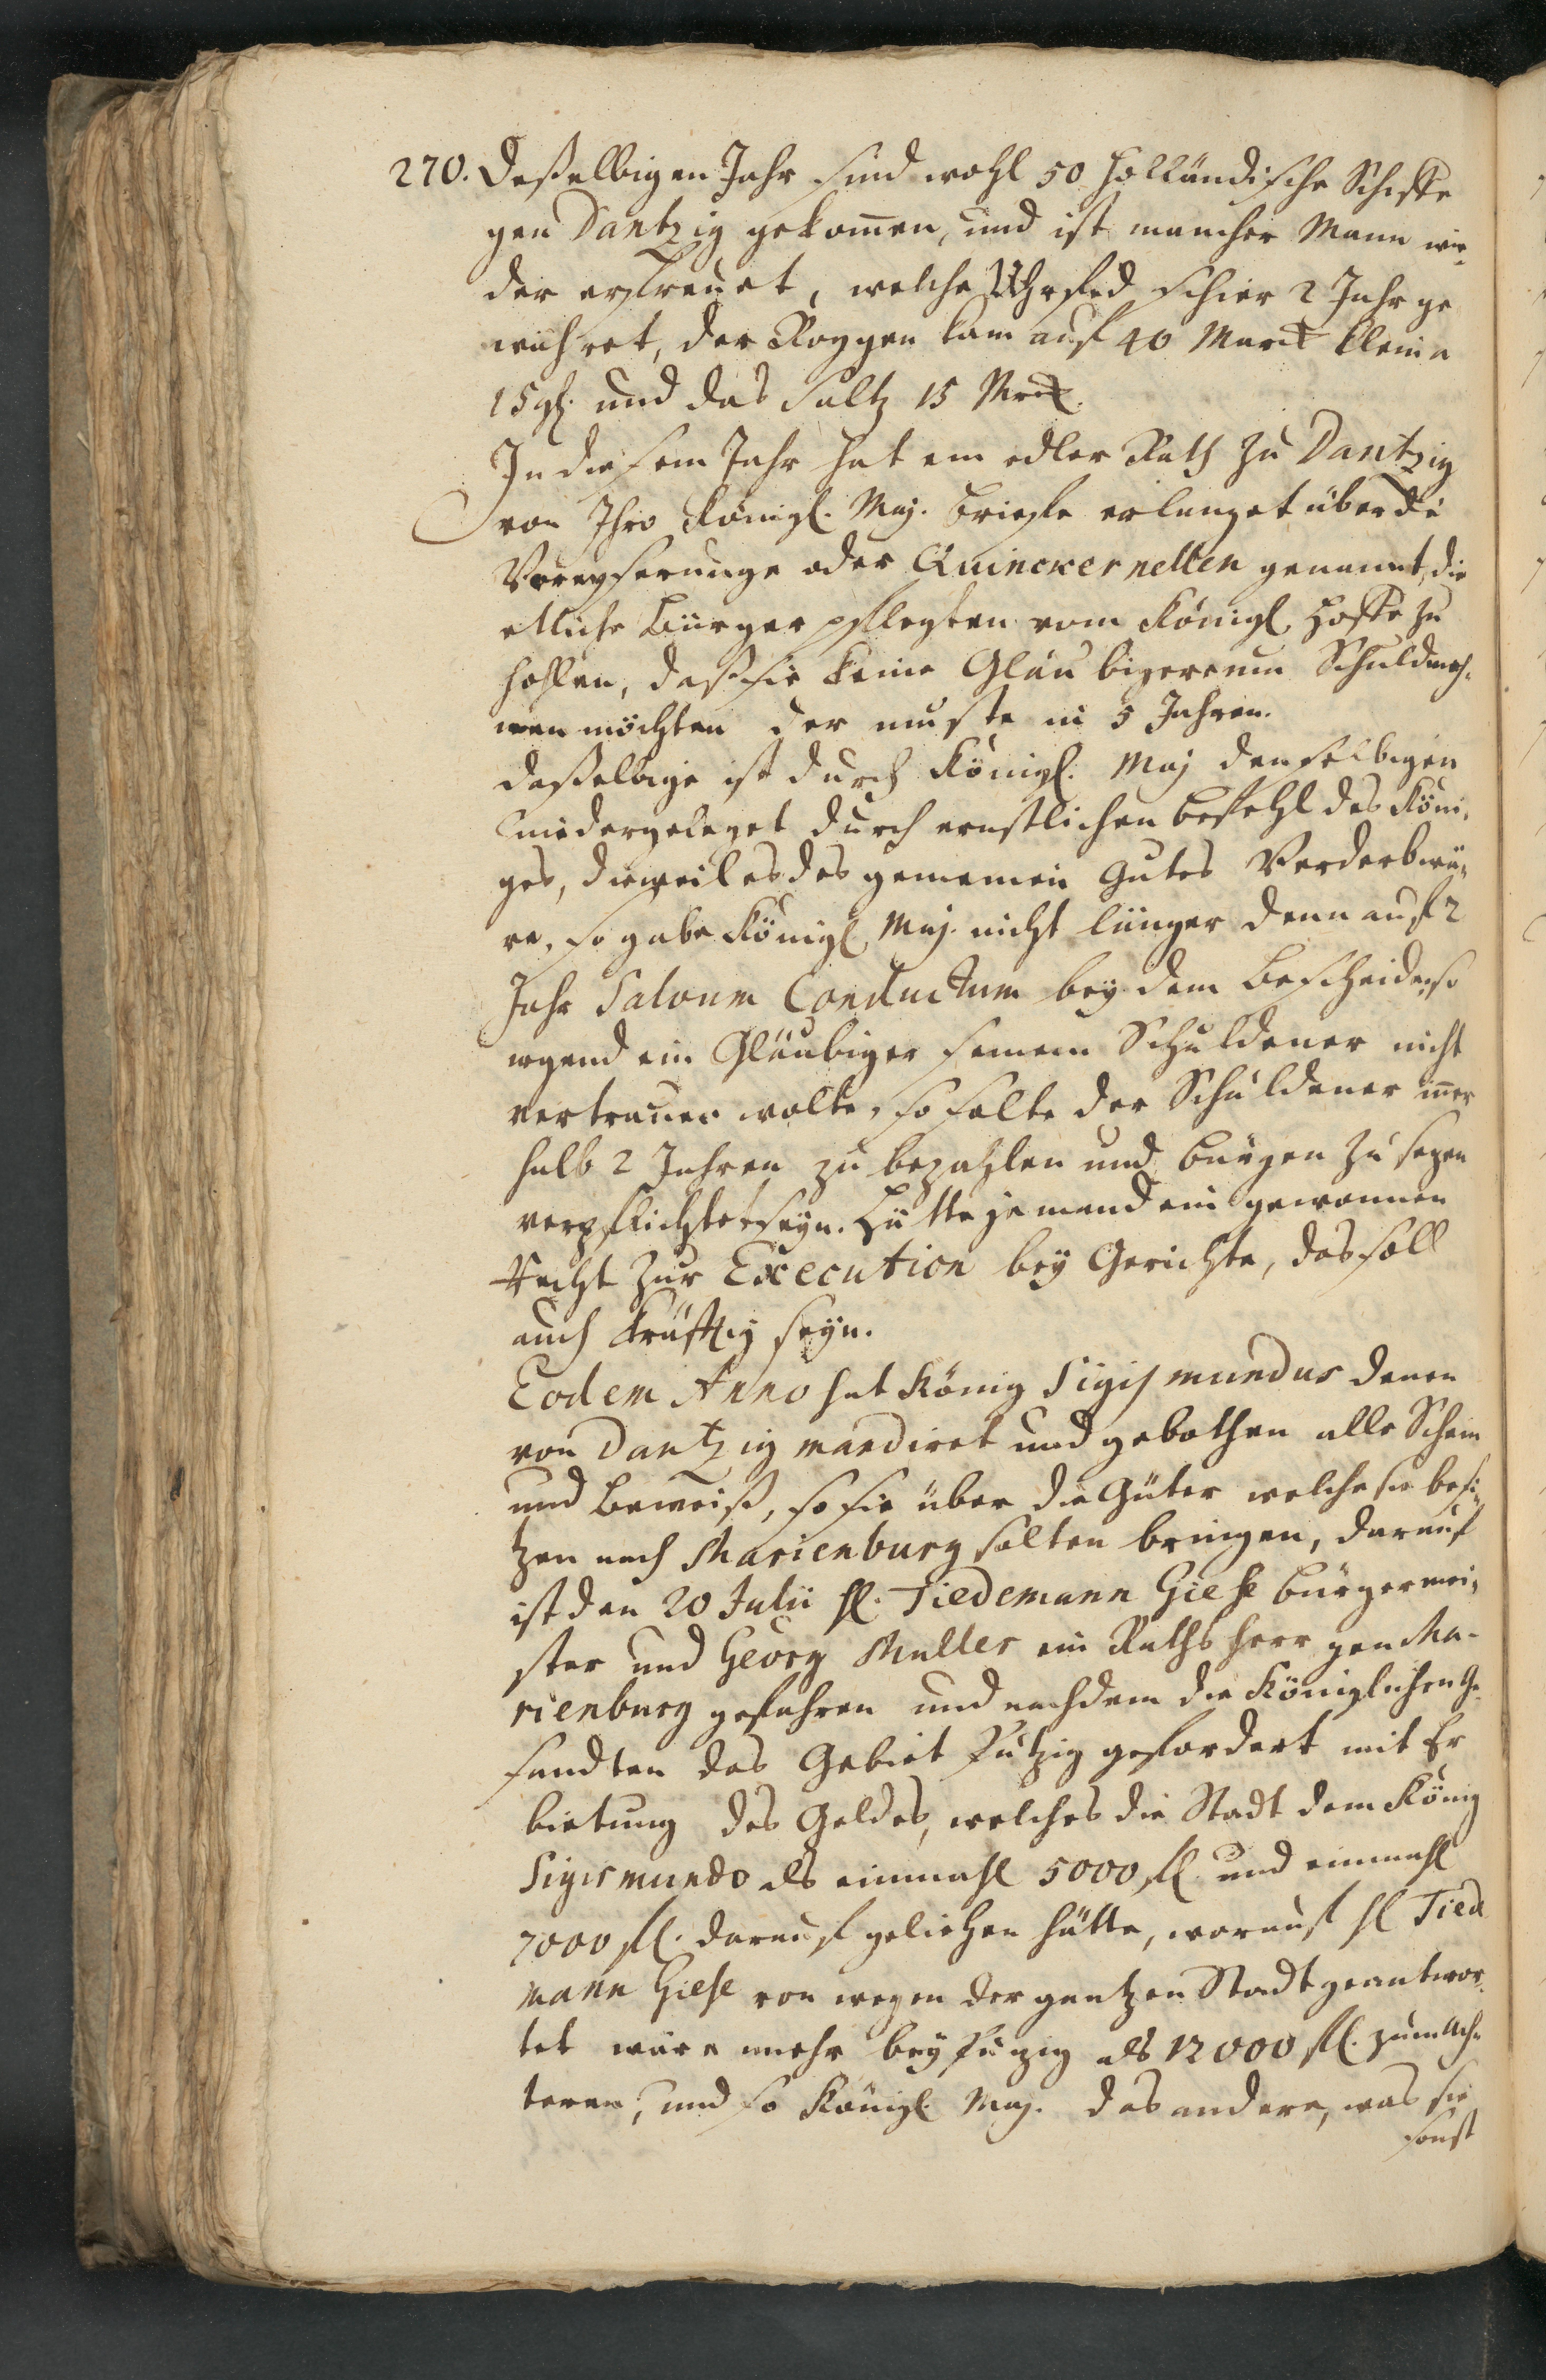 270. Deßelbigen Jahr sind wohl 50 Holländische Schiffe
gen Dantzig gekom̄en, und ist mancher Mann wie,
der erfreuet, welche Uhrfed schier 2 Jahr ge
währet, der Roggen kam auf 40 Marck kleine
15 gl. und das Saltz 15 Mrck.
In diesem Jahr hat ein edler Rath zu Dantzig
von Ihro Königl. Maj. Brieffe erlanget über die
oder Quinckernellen genannt, die
etliche Bürger pflegten vom Königl. Hoffe zu
hohlen, daß sie keine Gläubiger um Schuld mah,
nen möchten der muste in 5 Jahren.
daßelbige ist durch Königl. Maj denselbigen
niedergeleget durch ernstlichen Befehl des Köni,
ges, dieweil es des gemeinen Gutes Verderb wä,
re, so gabe Königl Maj. nicht länger denn auf 2
Jahr Salvum Conductum bey dem Bescheide, so
irgend ein Gläubiger seinem Schuldener nicht
vertrauen wolte, so solte der Schuldener iñer
halb 2 Jahren zu bezahlen und Bürgen zu sezen
verpflichtet seyn. Hätte jemand ein gewonnen
Recht zur Execution bey Gerichte, das soll
auch kräfftig seyn.
Eodem Anno hat König Sigismundus denen
von Dantzig mandiret und gebothen alle Schein
und Beweiß, so sie über die Güter welche sie besi,
tzen nach Marienburg solten bringen, darauf
ist den 20 Julii H. Tiedemann Giese Bürgermei,
ster und Georg Muller ein Rathsherr gen Ma-
rienburg gefahren und nachdem die Königlichen Ge,
sandten das Gebiet Putzig gefordert mit Er
bietung des Geldes, welches die Stadt dem König
Sigismundo als einmahl 5000 fl. und einmahl
7000 fl. darauf geliehen hätte, worauf H Tied
mann Giese von wegen der gantzen Stadt geantwor,
tet wäre mehr bey Puzig als 12000 fl. zum
teren, und so Königl. Maj. das andere, was sie
sonst